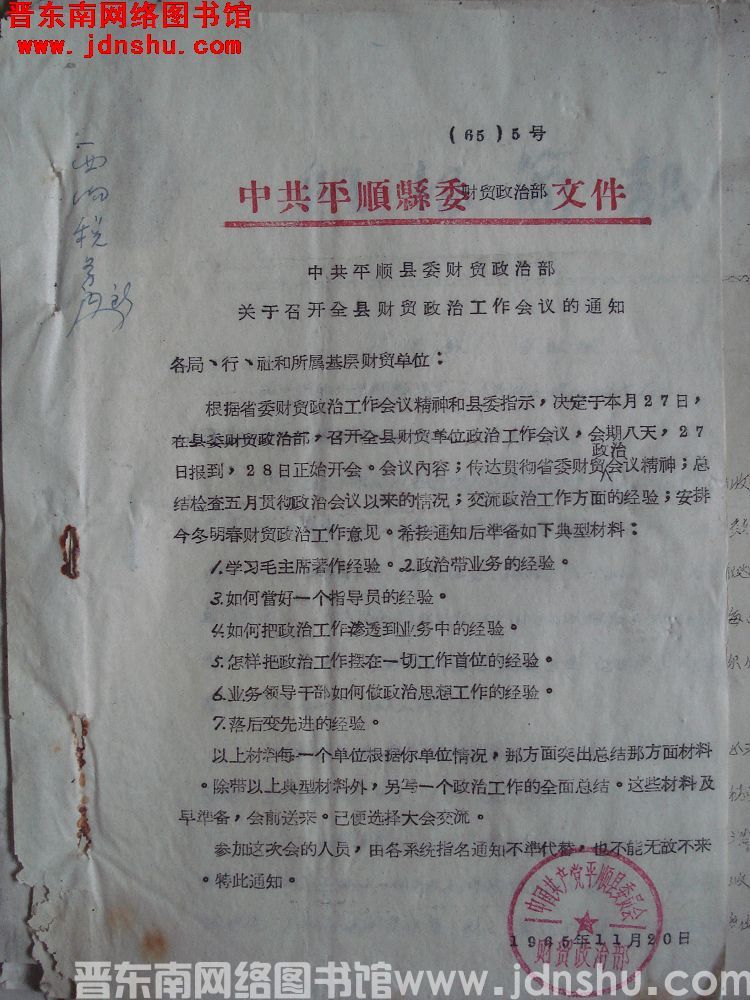 晋东南网络图书馆
www.jdnshu.com
(65)5号
中共平順縣委财贸政治部文件
中共平顺县委财贸政治部
关于召开全县财贸政治工作会议的通知
各局、行、社和所属基层财贸单位：
根据省委财贸政治工作会议精神和县委指示，决定于本月27日，
在县委财贸政治部，召开全县财贸单位政治工作会议，会期八天，27
日报到，28日正始开会。会议内容；传达贯彻省委财贸政治会议精神；总
结检查五月贯彻政治会议以来的情况；交流政治工作方面的经验；安排
今冬明春财贸政治工作意见。希接通知后準备如下典型材料：
1.学习毛主席著作经验。2.政治带业务的经验。
3.如何當好一个指导员的经验。
4.如何把政治工作渗透到业务中的经验。
5.怎样把政治工作摆在一切工作首位的经验。
6.业务领导干部如何做政治思想工作的经验。
7.落后变先进的经验。
以上材料每一个单位根据你单位情况，那方面突出总结那方面材料
。除带以上典型材料外，另写一个政治工作的全面总结。这些材料及
早準备，会前送来。已便选择大会交流。
参加这次会的人员，由各系统指名通知不準代替，也不能无故不来
。特此通知。
中国共产党平顺县委员会
财贸政治部
1965年11月20日
晋东南网络图书馆www.jdnshu.com